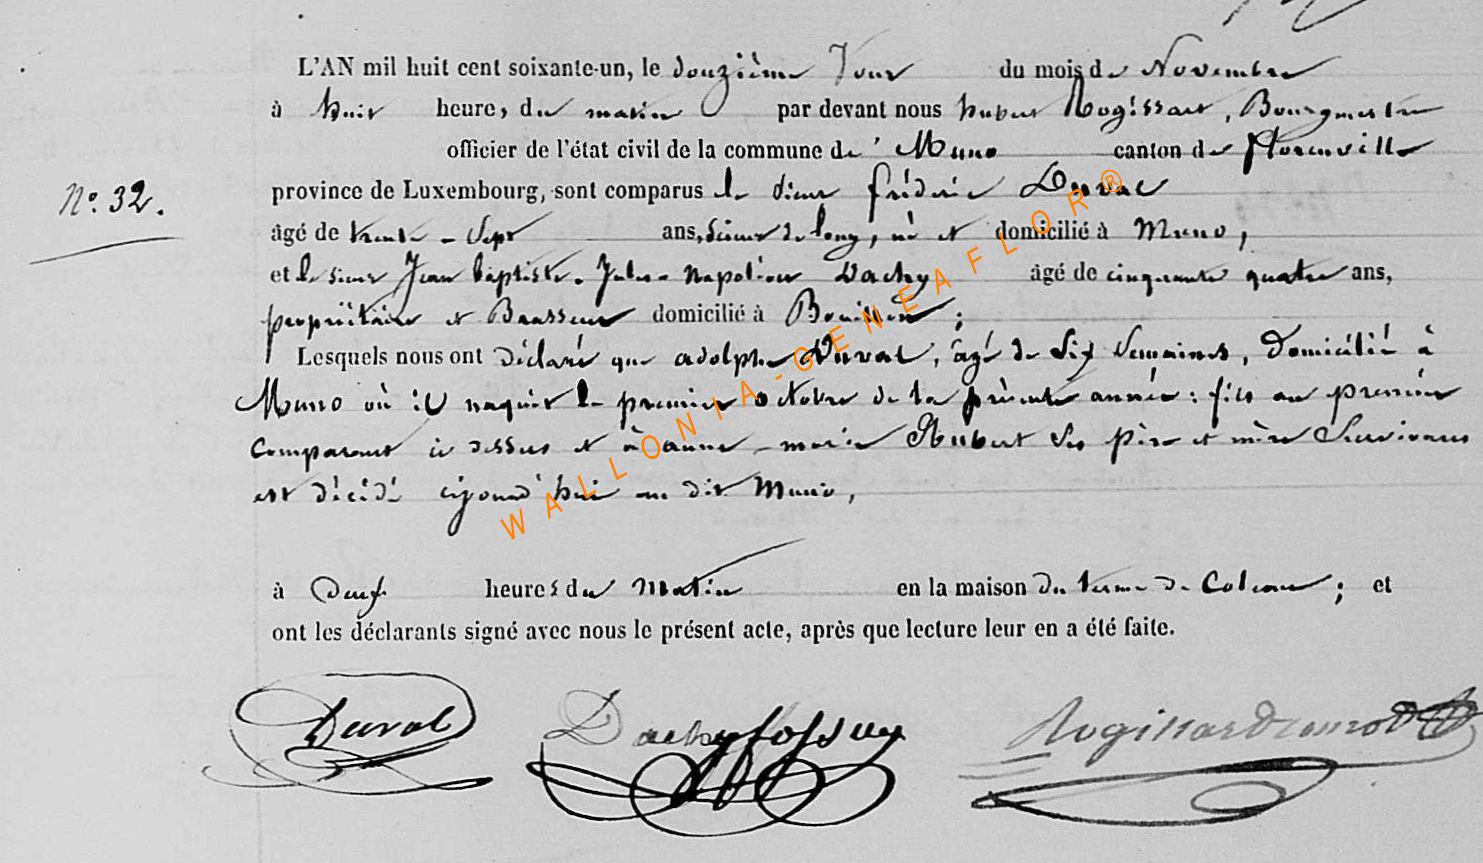 L'AN mil huit cent soixante-un, le douzième Jour du mois de Novembre
à huit heures du matin par devant nous hubert Rogissart, Bourgmestre
officier de l'état civil de la commune de Muno canton de Florenville
N°. 32.
province de Luxembourg, sont comparus le sieur frédéric Duval
âgé de trente-sept ans, scieur de long, né et domicilié à Muno,
et le sieur Jean baptiste. Jules-napoléon Dachy âgé de cinquante quatre ans,
propriétaire et Brasseur domicilié à Bouillon ;
Lesquels nous ont déclaré que adolphe Duval, âgé de six semaines, domicilié à
Muno où il naquit le premier octobre de la présente année : fils au premier
comparant ci dessus et à anne-marie Hubert ses père et mère survivans
est décédé cejourd'hui au dit Muno,
à deux heures du matin en la maison du terme de ; et
ont les déclarants signé avec nous le présent acte, après que lecture leur en a été faite.
Duval Dachy fossuy Rogissart
WALLONIA-GENEAFLOR®